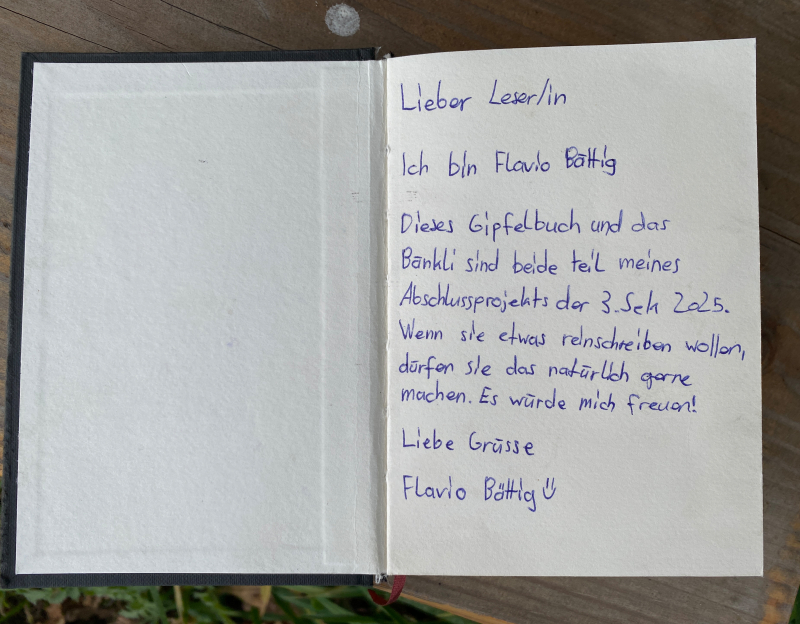 Lieber Leser/in
Ich bin Flavio Bättig
Dieses Gipfelbuch und das
Bänkli sind beide teil meines
Abschlussprojekts der 3.Sek 2025.
Wenn sie etwas reinschreiben wollen,
dürfen sie das natürlich gerne
machen. Es würde mich freuen!
Liebe Grüsse
Flavio Bättig ü